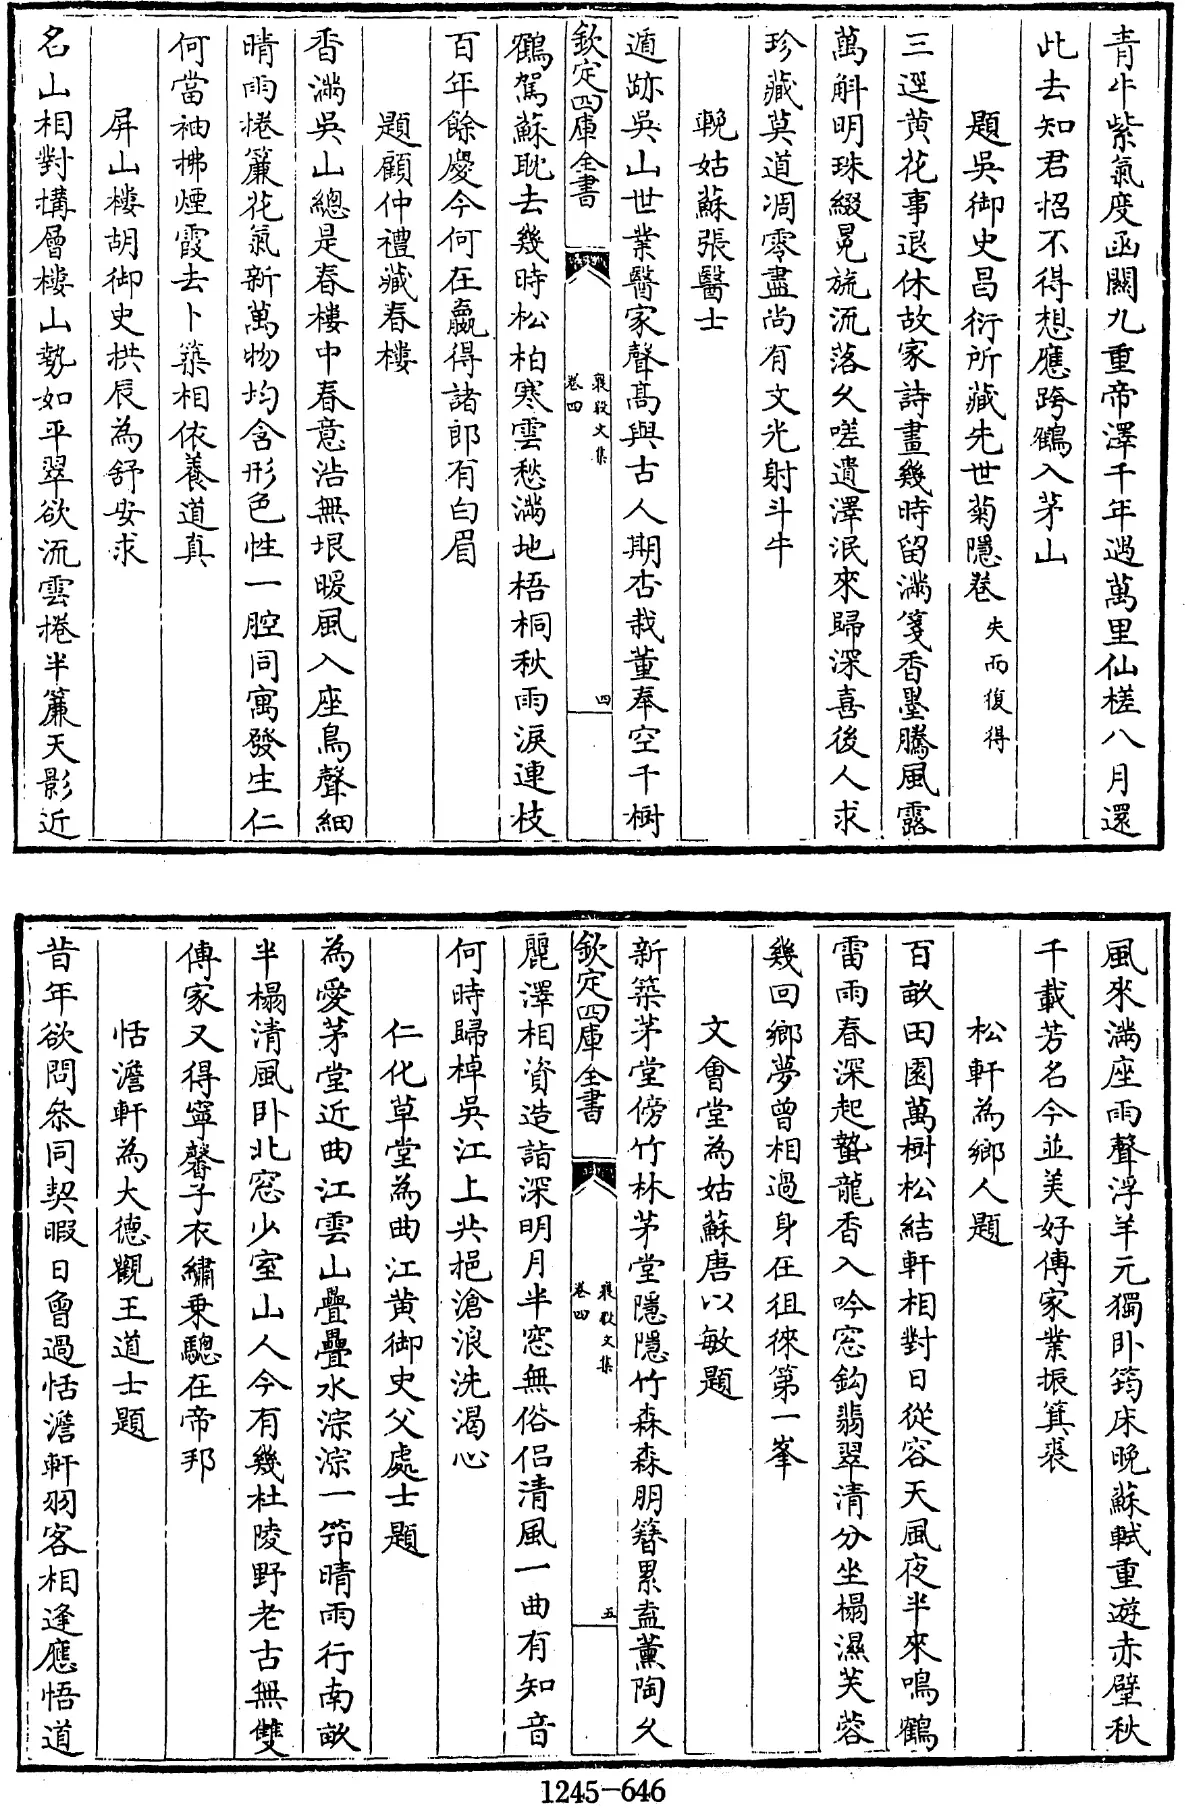 青牛紫氣度函關九重帝澤千年過萬里仙槎八月還
此去知君招不得想應跨鶴入茅山
題吳御史昌衍所藏先世菊隠卷失而復得
三逕黄花事退休故家詩畫幾時留滿箋香墨騰風露
萬斛明珠綴冕旒流落久嗟遺澤泯來歸深喜後人求
珍藏莫道凋零盡尚有文光射斗牛
輓姑蘇張醫士
遁跡吳山世業醫家聲髙與古人期杏栽董奉空千樹
欽定四庫全書
襄毅文集
卷四
四
鶴駕蘇耽去幾時松柏寒雲愁滿地梧桐秋雨淚連枝
百年餘慶今何在贏得諸郎有白眉
題顧仲禮藏春樓
香滿吳山總是春樓中春意浩無垠暖風入座鳥聲細
晴雨捲簾花氣新萬物均含形色性一腔同寓發生仁
何當袖拂煙霞去卜築相依養道真
屏山樓胡御史拱辰為舒安求
名山相對搆層樓山勢如平翠欲流雲捲半簾天影近
風來滿座雨聲浮羊元獨卧筠床晚蘇軾重遊赤壁秋
千載芳名今並美好傳家業振箕裘
松軒為鄉人題
百畝田園萬樹松結軒相對日從容天風夜半來鳴鶴
雷雨春深起蟄龍香入吟窓鈎翡翠清分坐榻濕芙蓉
幾回鄉夢曾相過身在徂徠第一峯
文會堂為姑蘇唐以敏題
新築茅堂傍竹林茅堂隱隱竹森森朋簪累盍薰陶久
欽定四庫全書
襄毅文集
卷四
五
麗澤相資造詣深明月半窓無俗侣清風一曲有知音
何時歸棹吳江上共挹滄浪洗渴心
仁化草堂為曲江黄御史父處士題
為愛茅堂近曲江雲山疊疊水淙淙一笻晴雨行南畝
半榻清風卧北窓少室山人今有幾杜陵野老古無雙
傳家又得寧馨子衣繡乗驄在帝邦
恬澹軒為大德觀王道士題
昔年欲問叅同契暇日曾過恬澹軒羽客相逢應悟道
1245-646